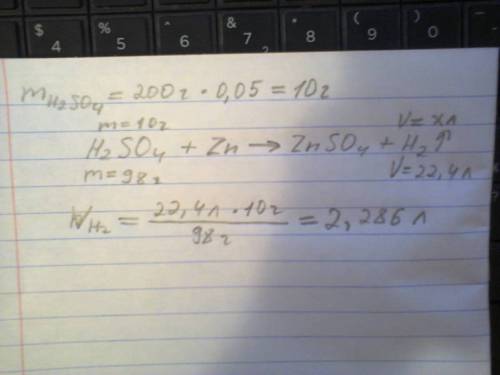 $ 4 % 5 ^ 6 & 7 * 8 ( 9 ) 0
m H₂SO₄ = 200г · 0,05 = 10г
m=10г V=xл
H₂SO₄ + Zn → ZnSO₄ + H₂↑
m=98г V=22,4л
V H₂ = 22,4л · 10г / 98г = 2,286 л